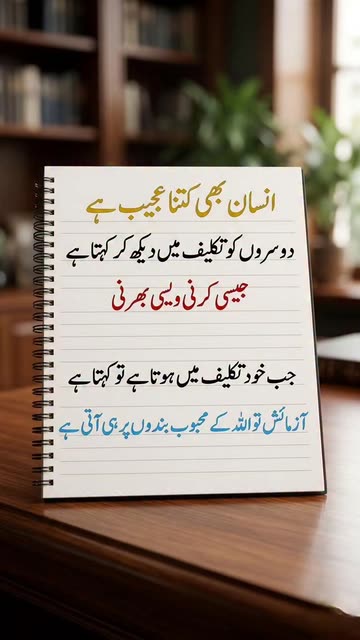 انسان بھی کتنا عجیب ہے
دوسروں کو تکلیف میں دیکھ کر کہتا ہے
جیسی کرنی ویسی بھرنی
جب خود تکلیف میں ہوتا ہے تو کہتا ہے
آزمائش تو اللہ کے محبوب بندوں پر ہی آتی ہے